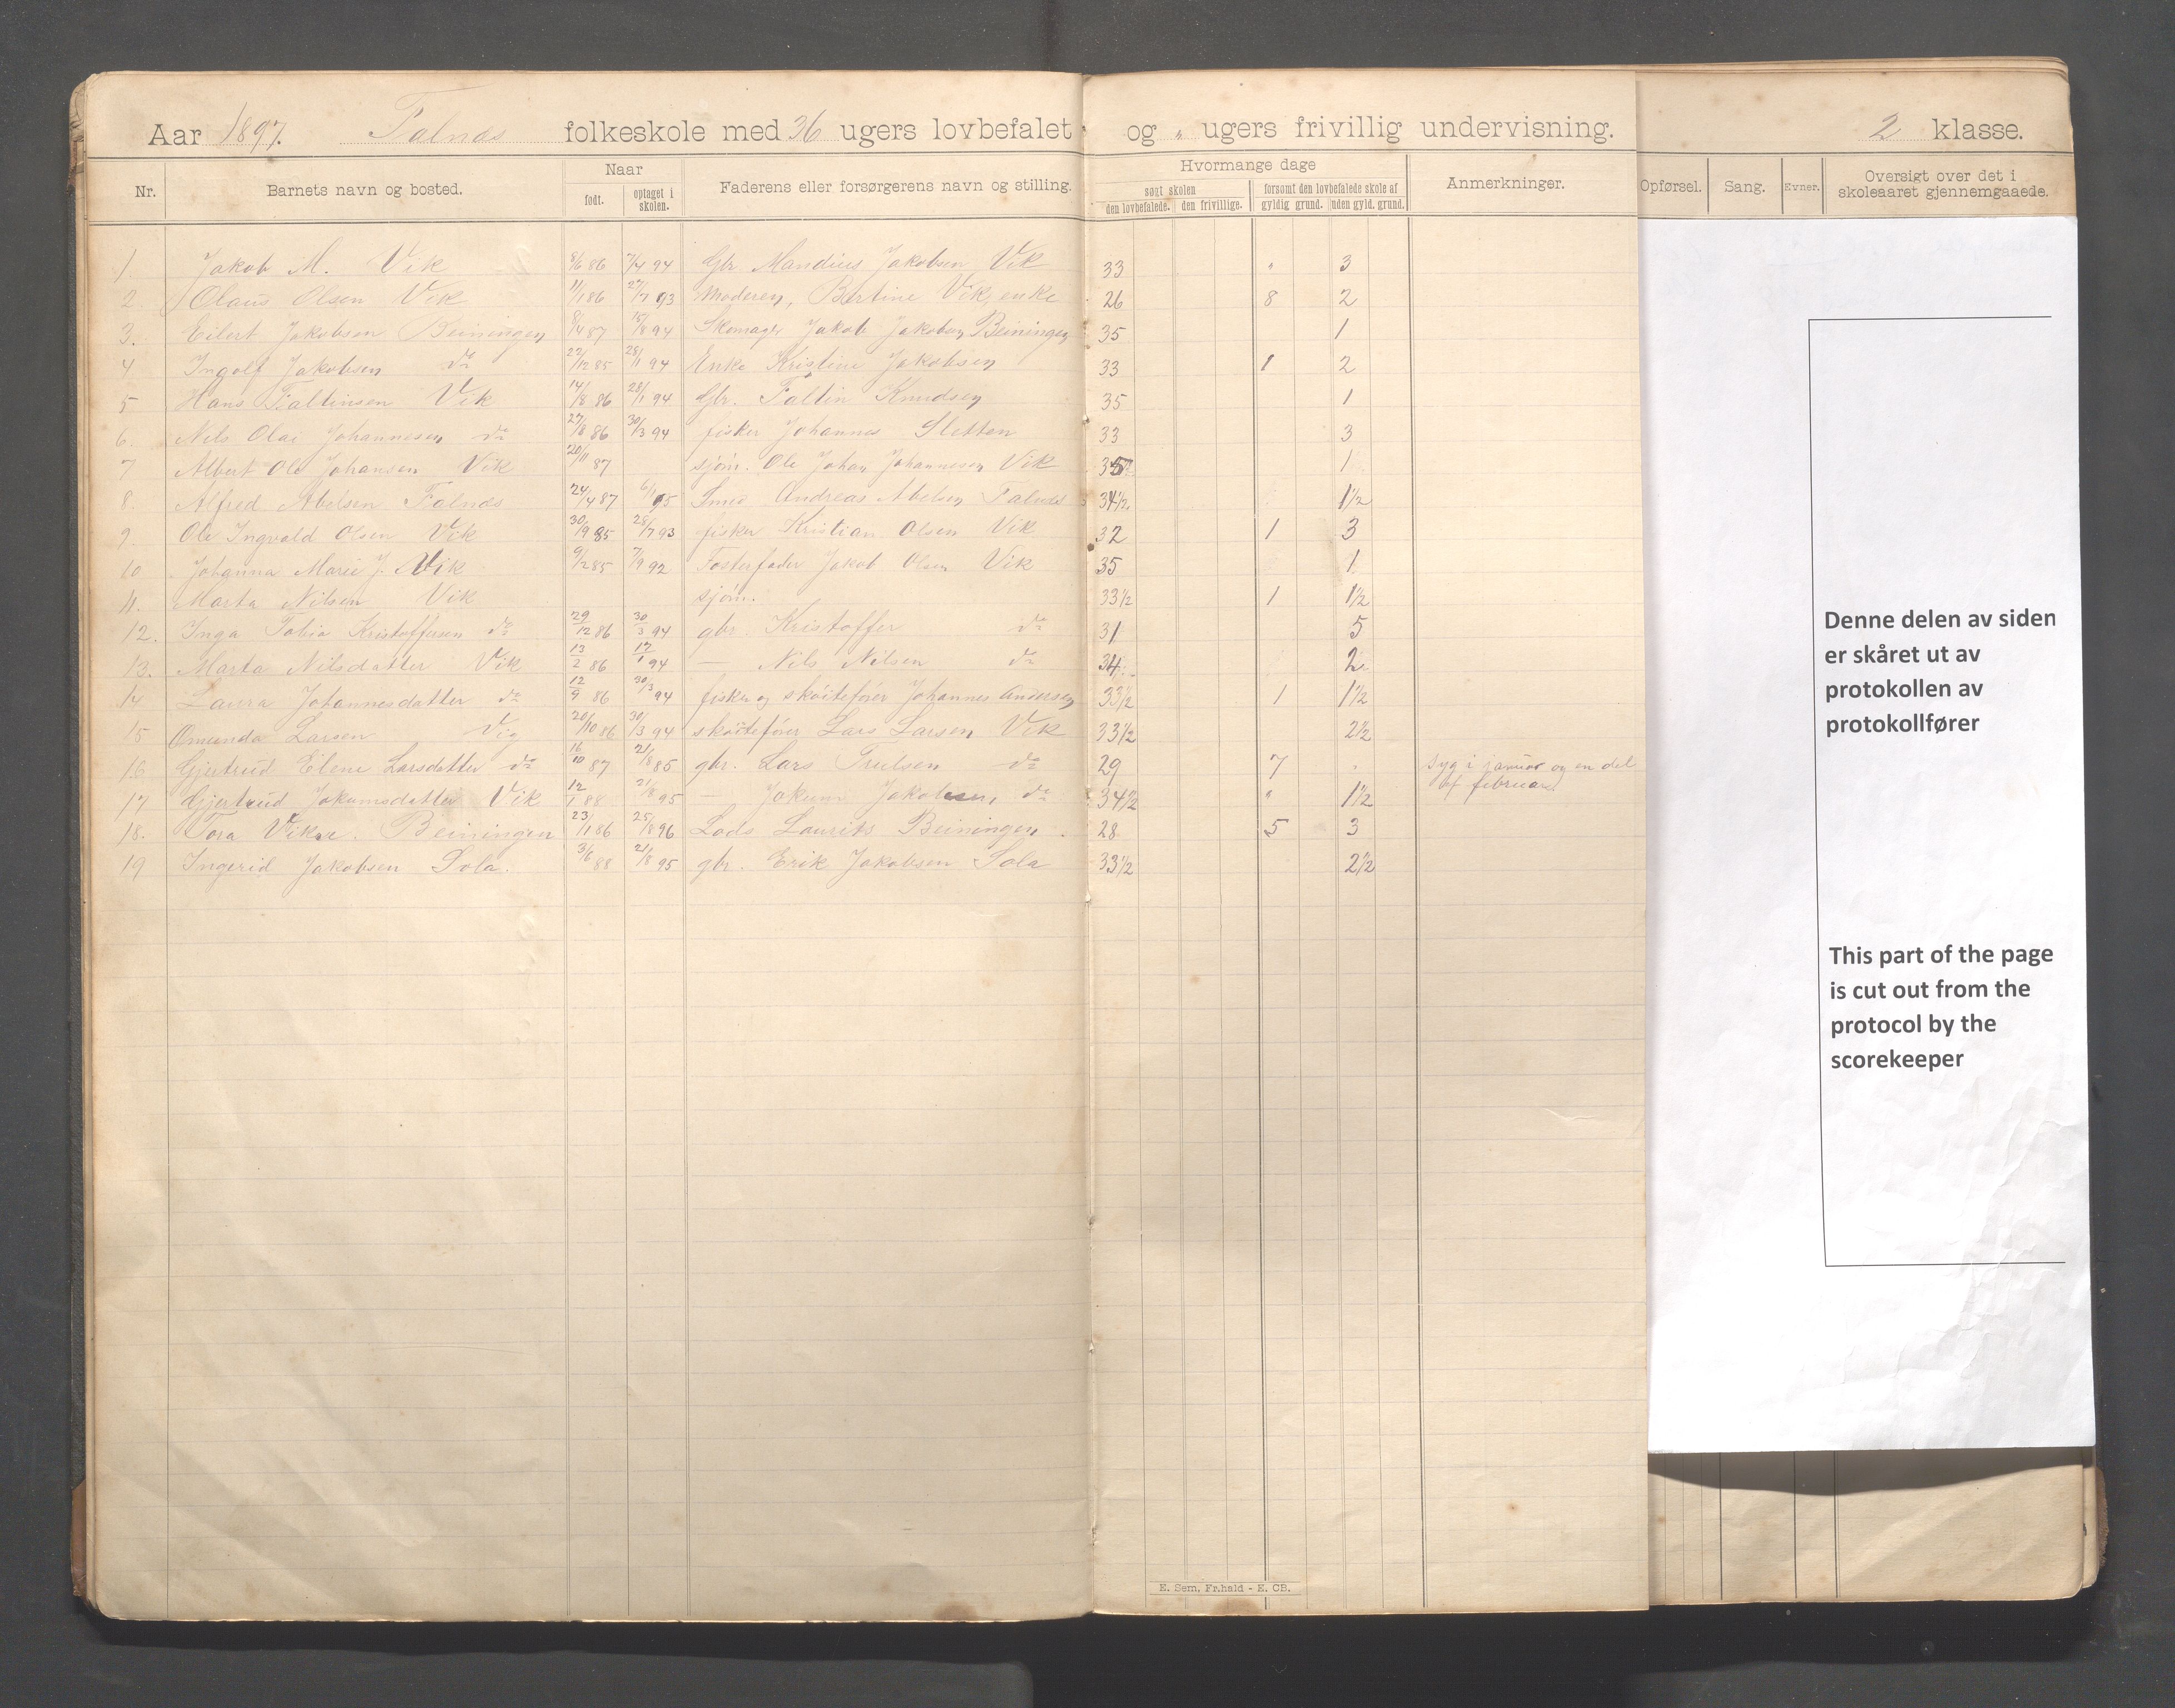 Aar 1897. Falnæs folkeskole med 36 ugers lovbefalet og " ugers frivillig undervisning. 2 klasse.
Nr. Barnets navn og bosted. Naar født. optaget i skolen. Faderens eller forsørgerens navn og stilling. Hvormange dage søgt skolen den lovbefalede. den frivillige. forsømt den lovbefalede skole af gyldig grund. uden gyld. grund. Anmerkninger. Opførsel. Sang. Evner. Oversigt over det i skoleaaret gjennemgaaede.
1 Jakob M. Vik 8/6 86 7/4 94 Gbr Mandius Jakobsen Vik 33 " 3
2 Olaus Olsen Vik 11/1 86 27/7 93 Moderen, Bertine Vik, enke 26 8 2
3. Eilert Jakobsen Beiningen 8/4 87 15/8 94 Skomager Jakob Jakobsen Beiningen 35 1
4 Ingolf Jakobsen do 22/12 85 28/1 94 Enke Kristine Jakobsen 33 1 2
5 Hans Faltinsen Vik 14/8 86 28/1 94 Gbr. Faltin Knudsen 35 1
6. Nils Olai Johannesen do 27/8 86 30/3 94 fisker Johannes Sletten 33 3
7 Albert Ole Johansen Vik 20/11 87 sjøm. Ole Johan Johannesen Vik 35 1
8. Alfred Abelsen Falnæs 24/4 87 6/1 95 Smed Andreas Abelsen Falnæs 34½ 1½
9. Ole Ingvald Olsen Vik 30/9 85 28/7 93 fisker Kristian Olsen Vik 32 1 3
10 Johanna Marie J. Vik 9/2 85 7/9 92 Fosterfader Jakob Olsen Vik 35 1
11. Marta Nilsen Vik sjøm. 33½ 1 1½
12. Inga Tobia Kristoffersen do 29/12 86 30/3 94 gbr. Kristoffer do 31 5
13. Marta Nilsdatter Vik 13/2 86 17/1 94 — Nils Nilsen do 34. 2
14 Laura Johannesdatter do 12/9 86 30/3 94 fisker og skøitefører Johannes Andersen 33½ 1 1½
15 Omunda Larsen Vig 20/10 86 30/3 94 skøitefører Lars Larsen Vik 33½ 2½
16 Gjertrud Elene Larsdatter do 16/10 87 21/8 85 gbr. Lars Trulsen do 29 7 " syg i januar og en del
af februar.
17 Gjertrud Jokumsdatter Vik 12/1 88 21/8 95 — Jokum Jakobsen, do 34½ " 1½
18. Tora Beiningen 23/1 86 25/8 96 Lods Laurits Beiningen 28 5 3
19 Ingerid Jakobsen Sola. 3/6 88 21/8 95 gbr. Erik Jakobsen Sola 33½ 2½
E. Sem, Fr.hald - E. CB.
Denne delen av siden
er skåret ut av
protokollen av
protokollfører
This part of the page
is cut out from the
protocol by the
scorekeeper